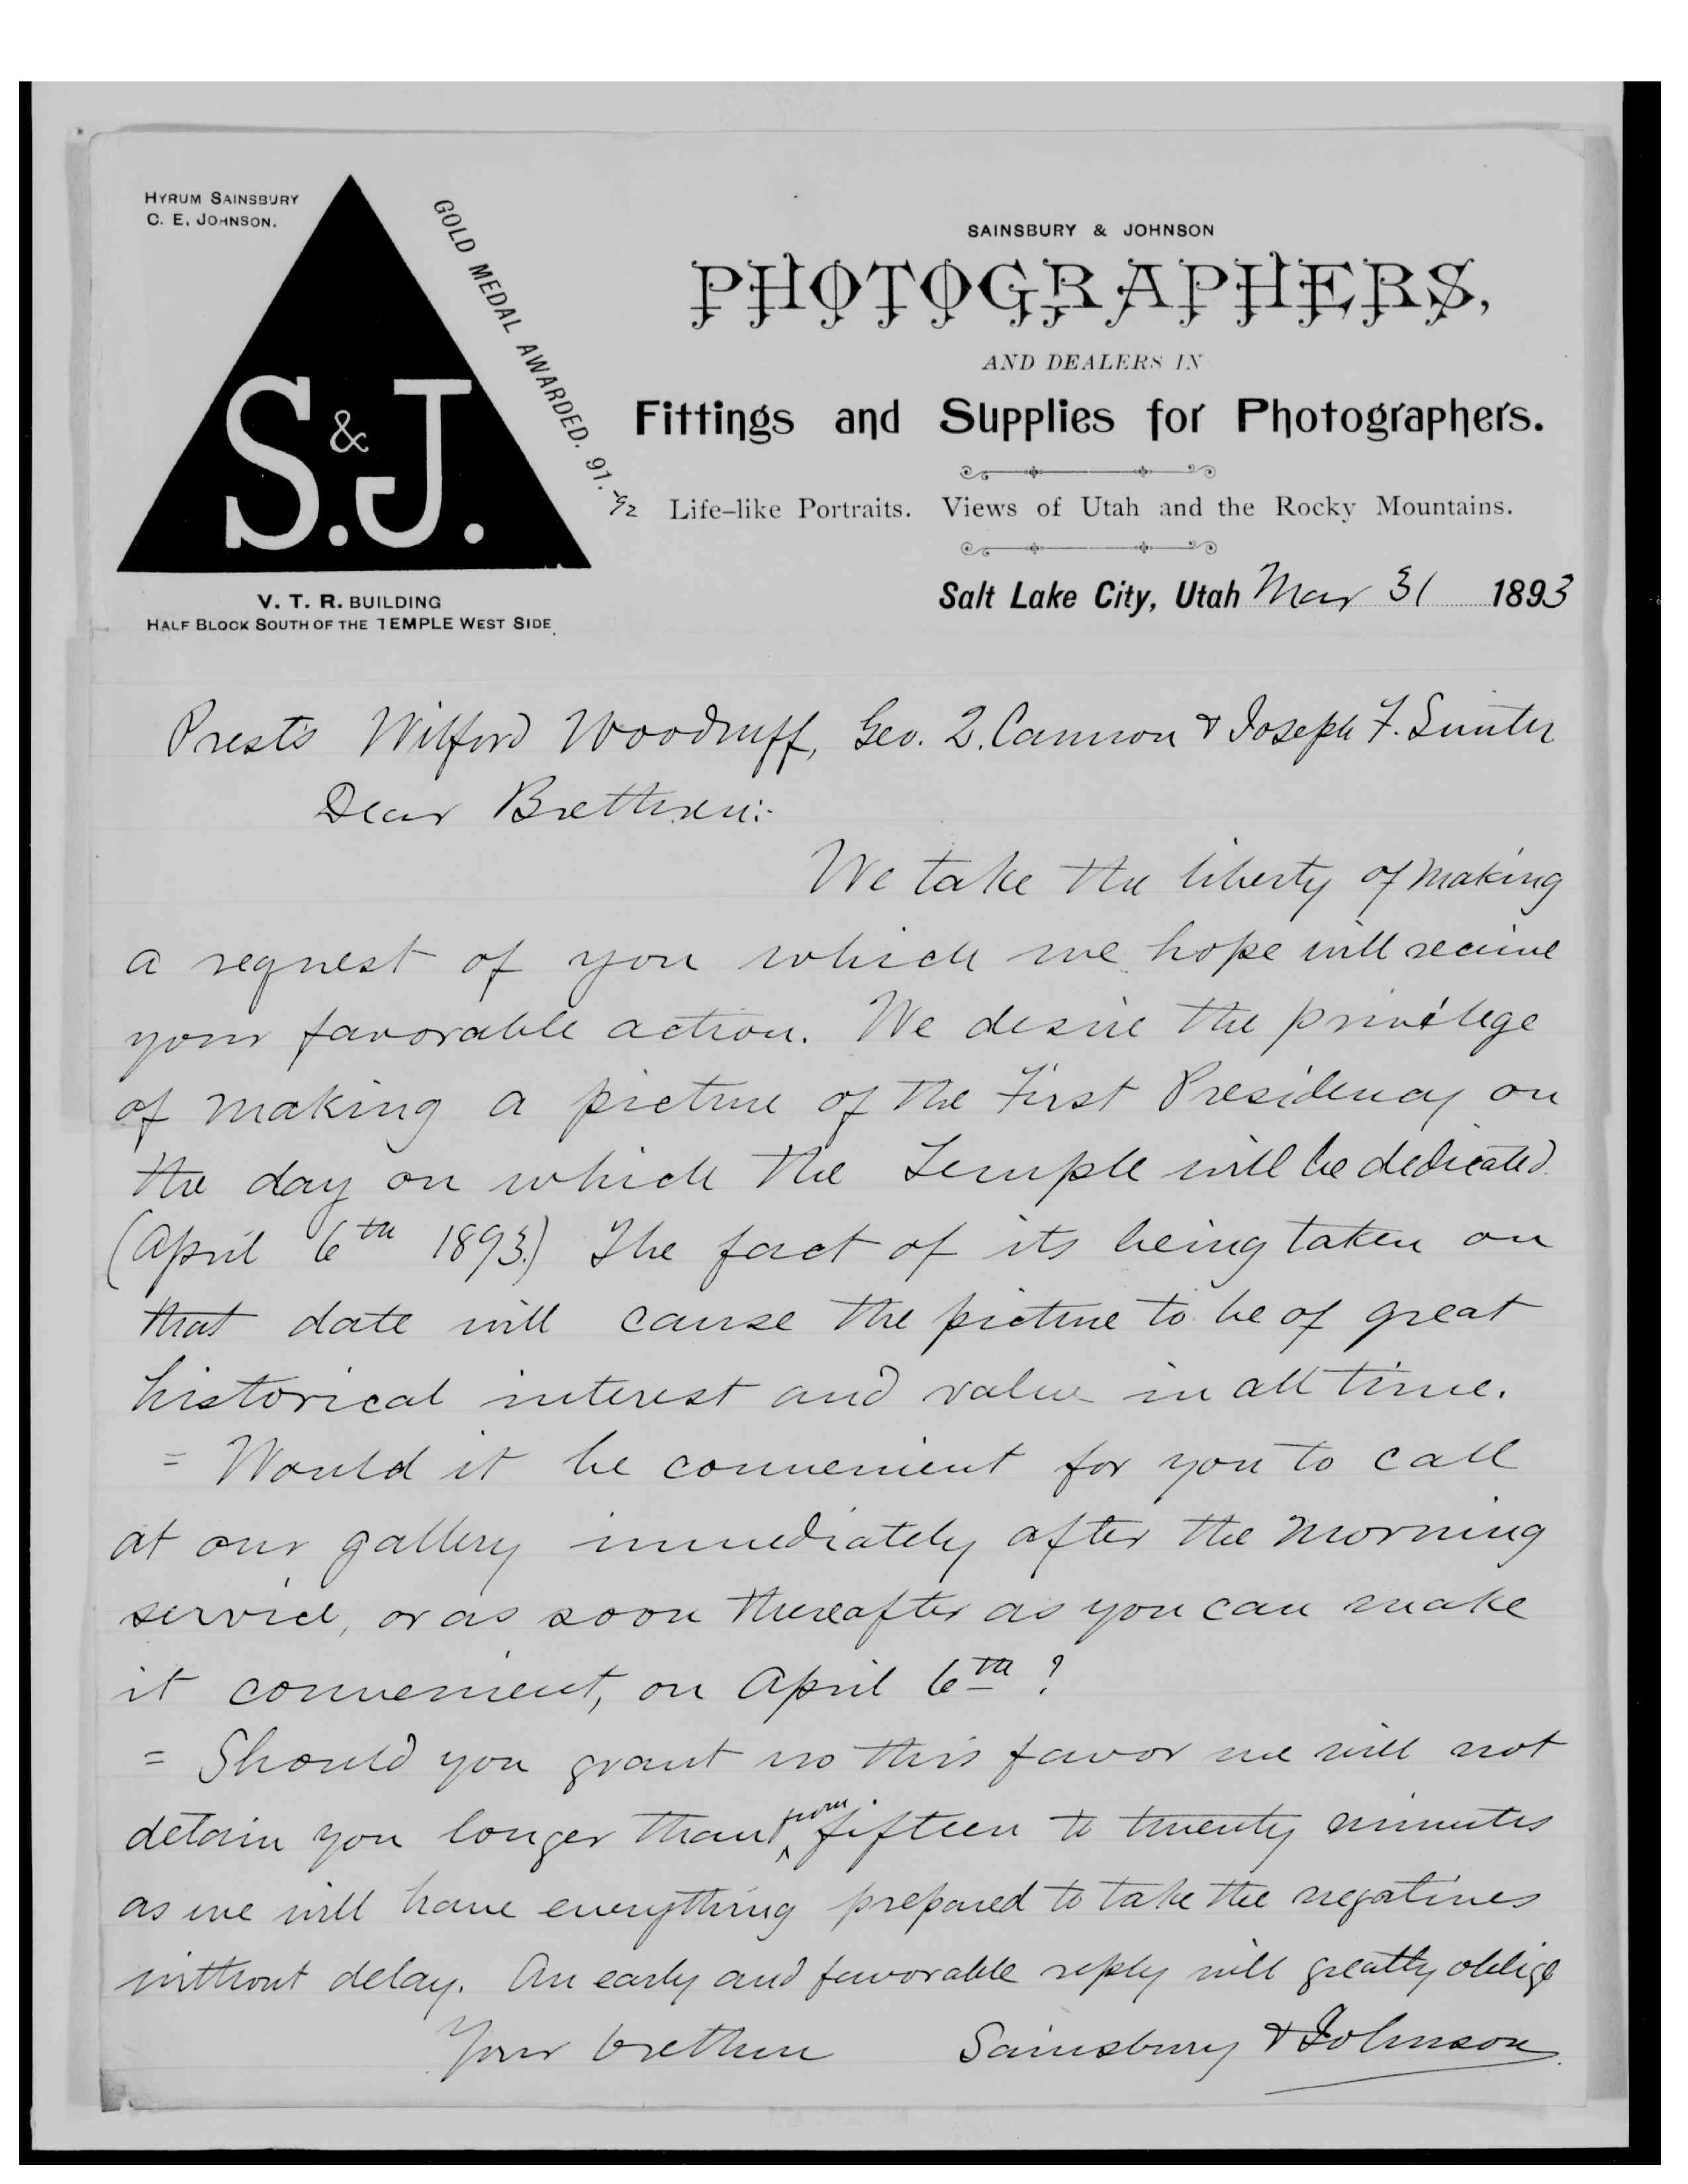 HYRUM SAINSBURY
C. E. JOHNSON.
GOLD MEDAL AWARDED. 91.-92
S. & J.
V. T. R. BUILDING
HALF BLOCK SOUTH OF THE TEMPLE WEST SIDE
SAINSBURY & JOHNSON
PHOTOGRAPHERS,
AND DEALERS IN
Fittings and Supplies for Photographers.
Life-like Portraits. Views of Utah and the Rocky Mountains.
Salt Lake City, Utah Mar 31 1893
Prests Wilford Woodruff, Geo. Q. Cannon & Joseph F. Smith
Dear Brethren:-
We take the liberty of making
a request of you which we hope will receive
your favorable action. We desire the privilege
of making a picture of the First Presidency on
the day on which the Temple will be dedicated.
(April 6th 1893.) The fact of its being taken on
that date will cause the picture to be of great
historical interest and value in all time.
= Would it be convenient for you to call
at our gallery immediately after the morning
service, or as soon thereafter as you can make
it convenient, on April 6th ?
= Should you grant us this favor we will not
detain you longer than from fifteen to twenty minutes
as we will have everything prepared to take the negatives
without delay. An early and favorable reply will greatly oblige
Your brethren Sainsbury & Johnson